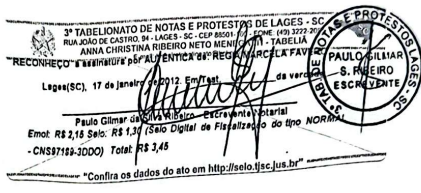 3º TABELIONATO DE NOTAS E PROTESTOS DE LAGES - SC
RUA JOÃO DE CASTRO, 94 - LAGES - SC - CEP 88501- - FONE: (49) 3222-
ANNA CHRISTINA RIBEIRO NETO - TABELIÃ
RECONHEÇO a assinatura por AUTÊNTICA de: MARCELA
Lages(SC), 17 de janeiro de 2012. Em Test. da verdade
Paulo Gilmar da Silva Ribeiro - Escrevente Notarial
Emol: R$ 2,15 Selo: R$ 1,30 (Selo Digital de Fiscalização do tipo NORMAL
- CNS97189-3DDO) Total: R$ 3,45
"Confira os dados do ato em http://selo.tjsc.jus.br"
3º TAB DE NOTAS E PROTESTOS LAGES - SC
PAULO GILMAR
S. RIBEIRO
ESCREVENTE